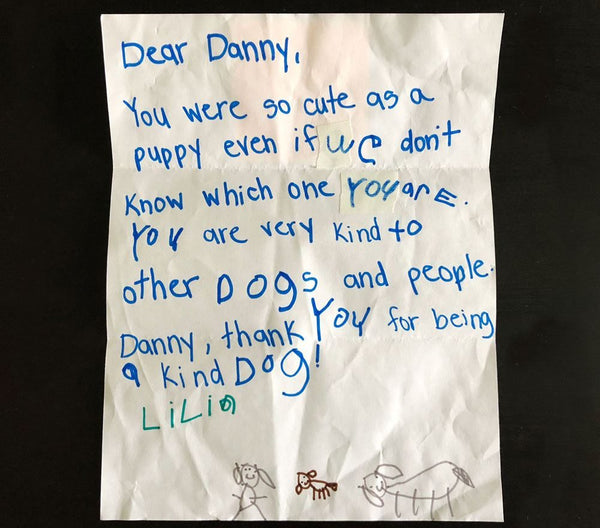 Dear Danny,
You were so cute as a
puppy even if we don't
know which one you are.
You are very kind to
other Dogs and people.
Danny, thank You for being
a kind Dog!
LiLia